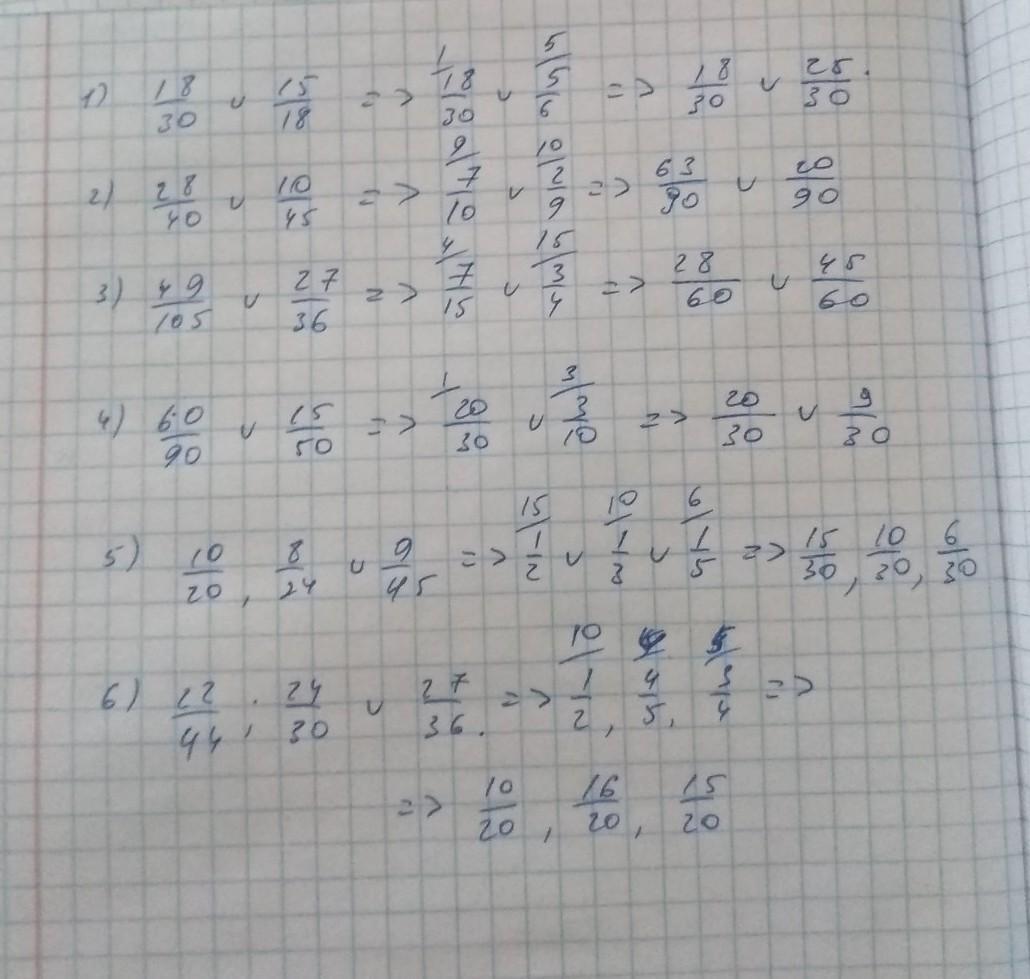 1) 18/30 и 15/18 => 1/ 18/30 и 5/ 5/6 => 18/30 и 25/30.
2) 28/40 и 10/45 => 9/ 7/10 и 10/ 2/9 => 63/90 и 20/90
3) 49/105 и 27/36 => 4/ 7/15 и 15/ 3/4 => 28/60 и 45/60
4) 60/90 и 15/50 => 1/ 20/30 и 3/ 3/10 => 20/30 и 9/30
5) 10/20, 8/24 и 9/45 => 15/ 1/2 и 10/ 1/3 и 6/ 1/5 => 15/30, 10/30, 6/30
6) 22/44; 24/30 и 27/36. => 10/ 1/2, 4/ 4/5, 5/ 3/4 =>
=> 10/20, 16/20, 15/20